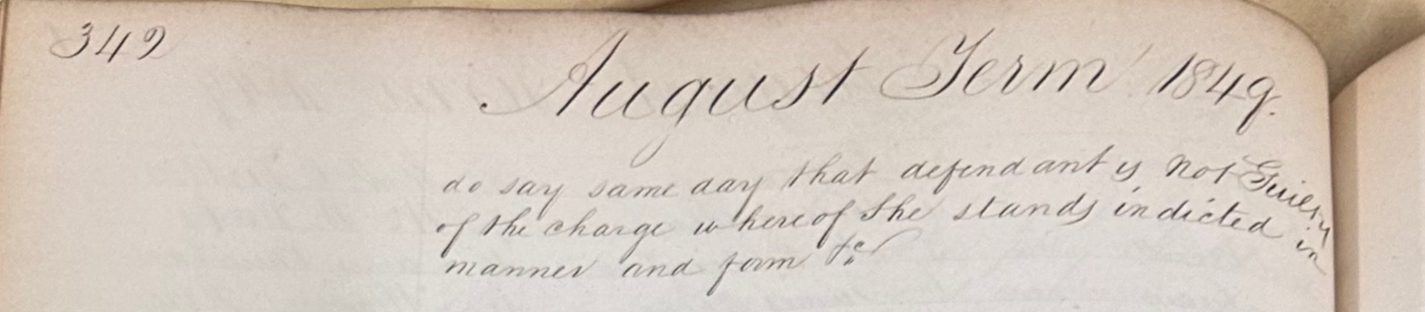 349
August Term 1849.
do say same day that defendant is not Guilty
of the charge whereof she stands indicted in
manner and form &c